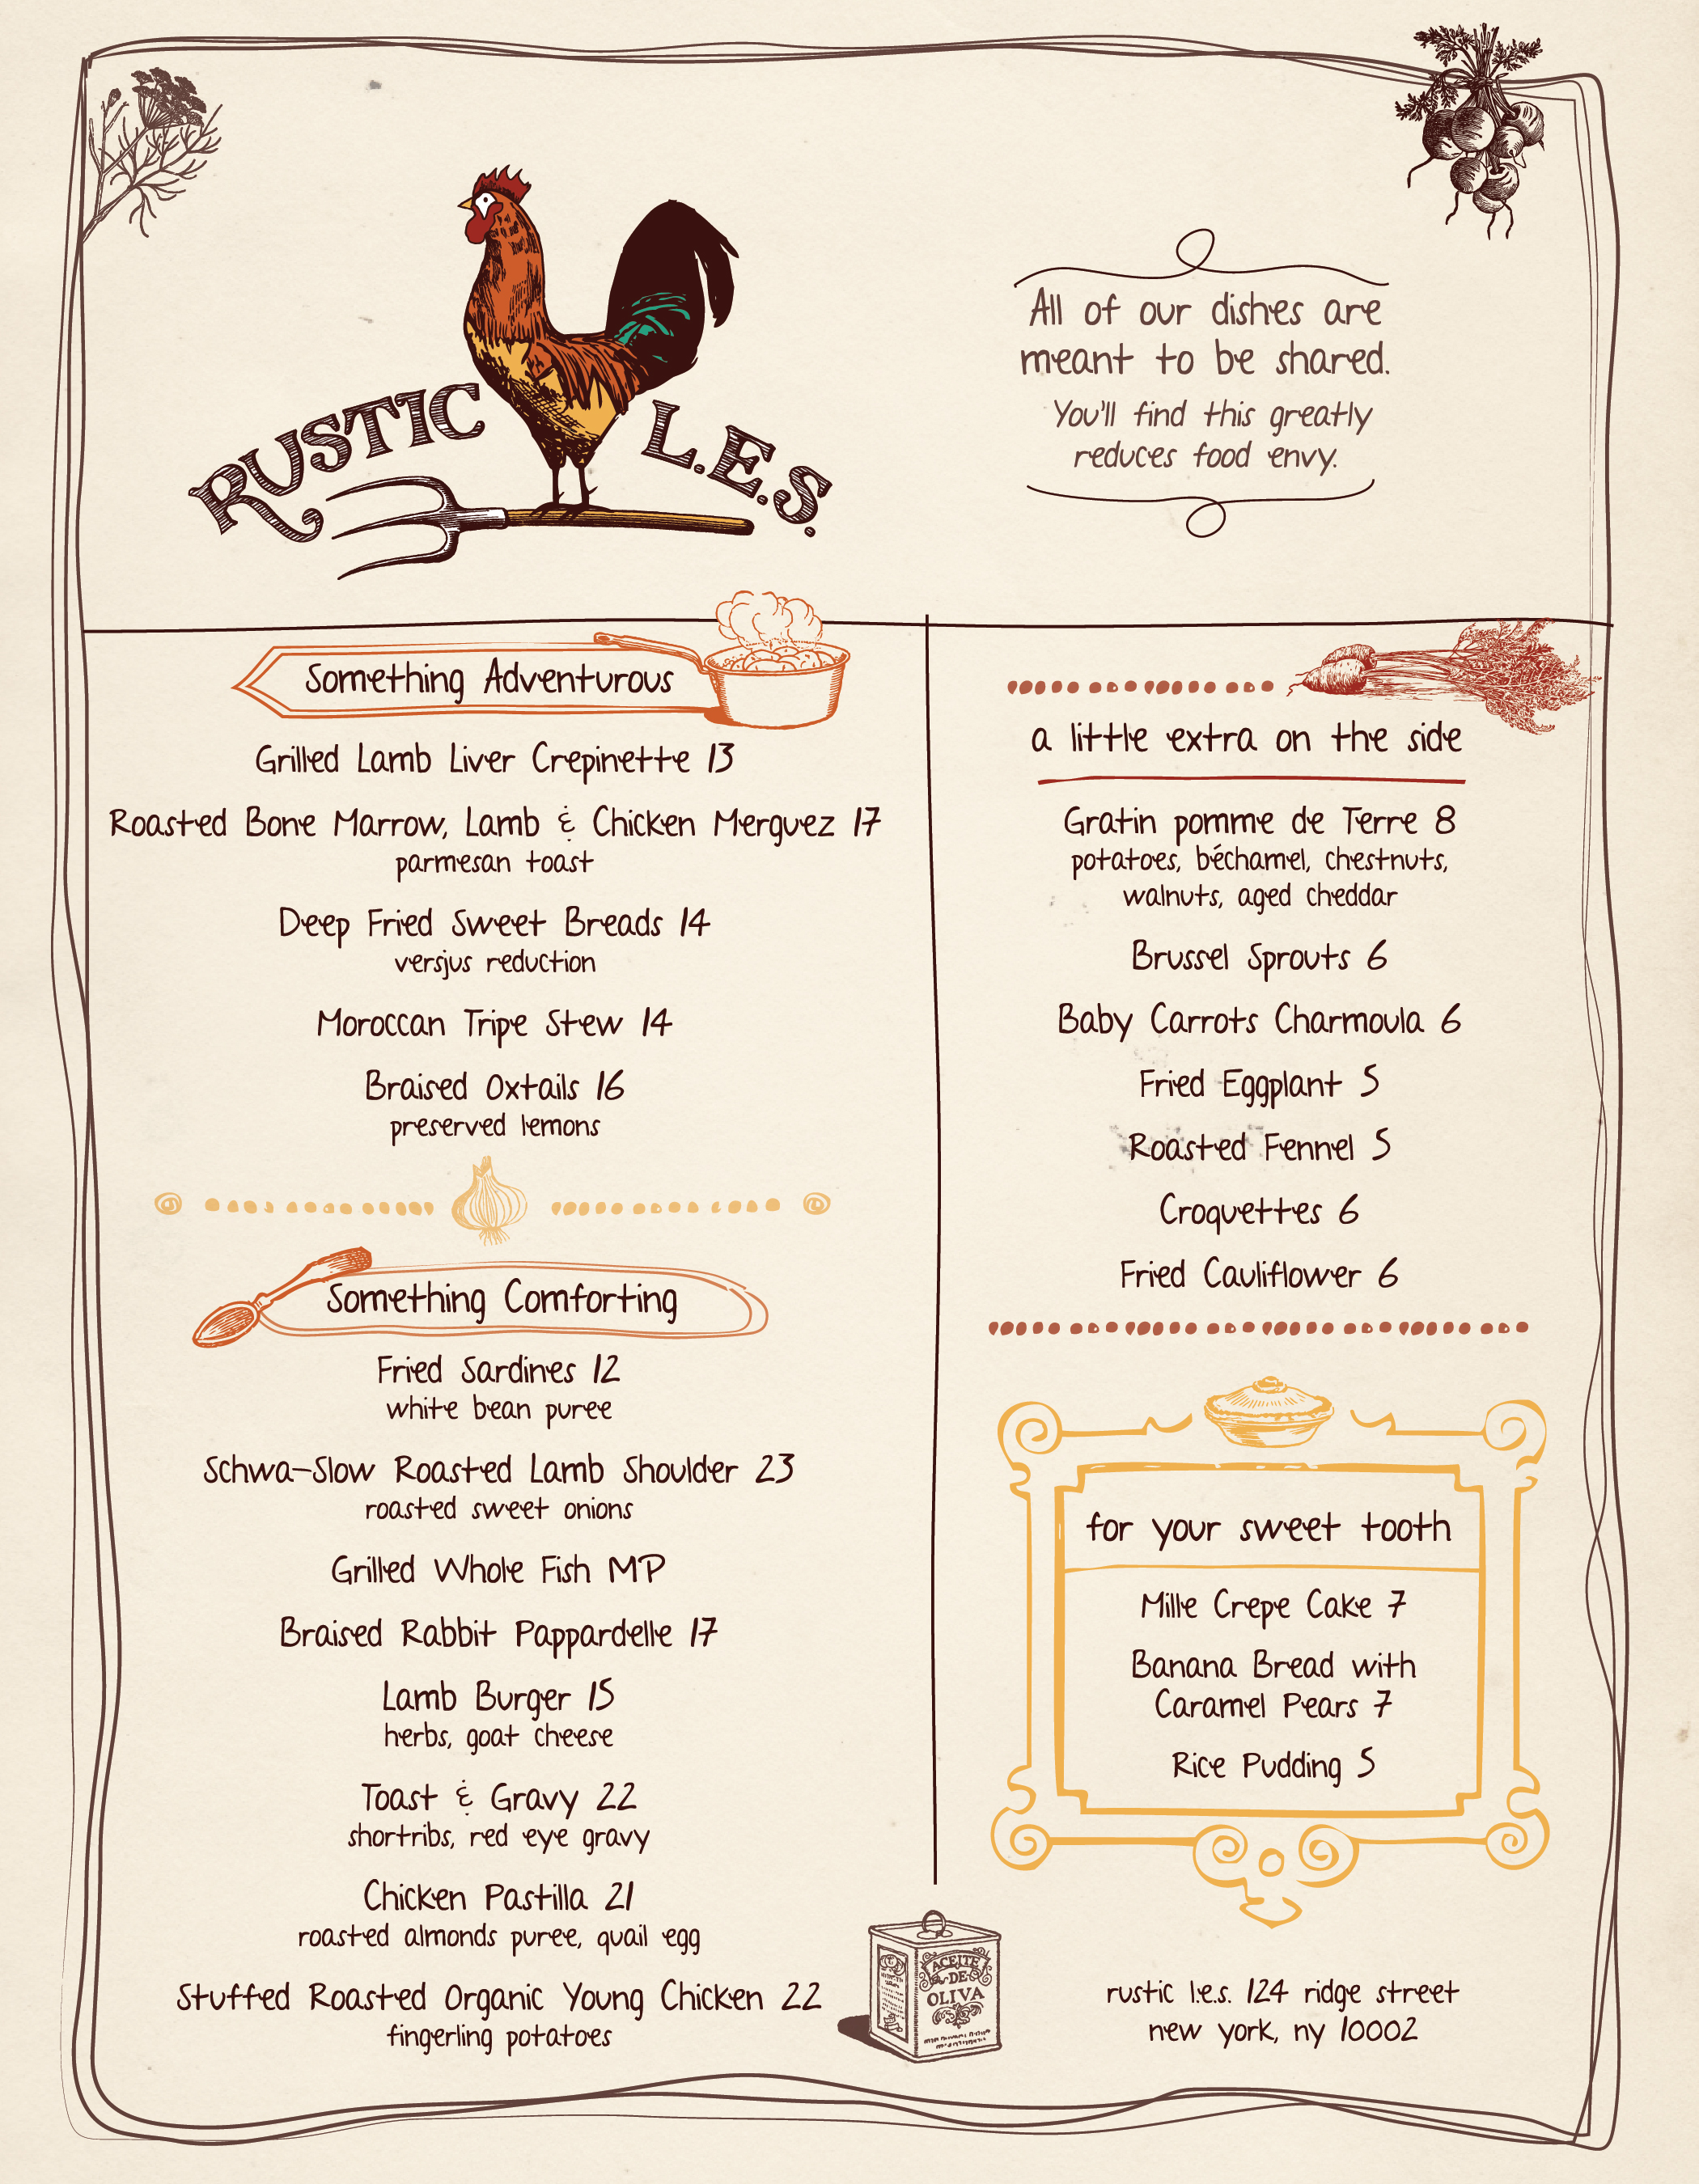 RUSTIC L.E.S.
All of our dishes are
meant to be shared.
You'll find this greatly
reduces food envy.
Something Adventurous
Grilled Lamb Liver Crepinette 13
Roasted Bone Marrow, Lamb & Chicken Merguez 17
parmesan toast
Deep Fried Sweet Breads 14
versjus reduction
Moroccan Tripe Stew 14
Braised Oxtails 16
preserved lemons
Something Comforting
Fried Sardines 12
white bean puree
Schwa-Slow Roasted Lamb Shoulder 23
roasted sweet onions
Grilled Whole Fish MP
Braised Rabbit Pappardelle 17
Lamb Burger 15
herbs, goat cheese
Toast & Gravy 22
shortribs, red eye gravy
Chicken Pastilla 21
roasted almonds puree, quail egg
Stuffed Roasted Organic Young Chicken 22
fingerling potatoes
a little extra on the side
Gratin pomme de Terre 8
potatoes, béchamel, chestnuts,
walnuts, aged cheddar
Brussel Sprouts 6
Baby Carrots Charmoula 6
Fried Eggplant 5
Roasted Fennel 5
Croquettes 6
Fried Cauliflower 6
for your sweet tooth
Mille Crepe Cake 7
Banana Bread with
Caramel Pears 7
Rice Pudding 5
ACEITE
DE
OLIVA
rustic l.e.s. 124 ridge street
new york, ny 10002